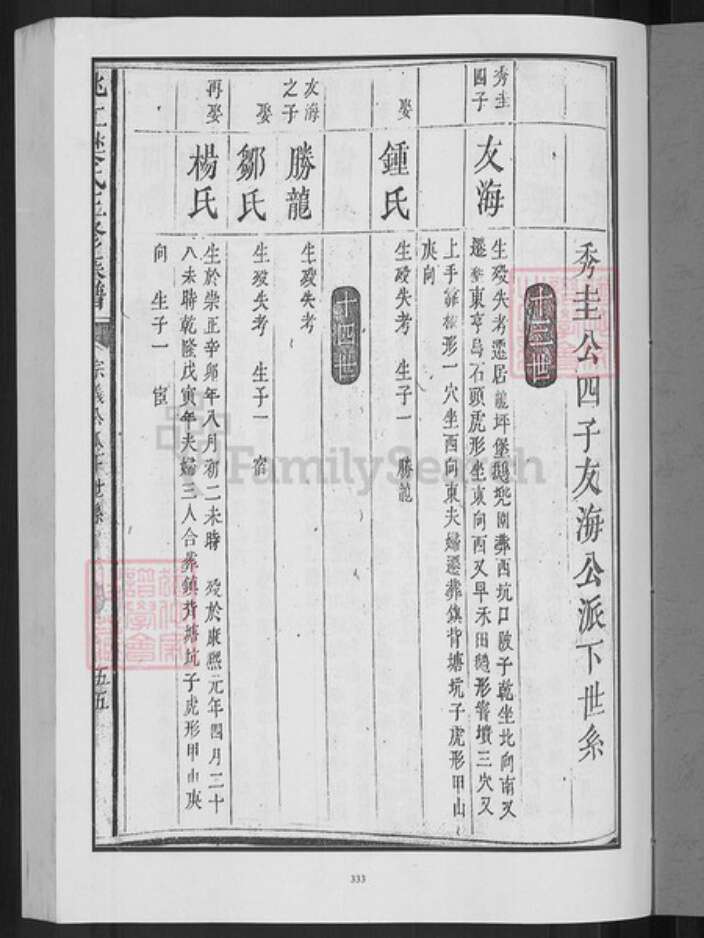 秀圭公四子友海公派下世系
十三世
秀圭四子
友海
生歿失考遷居龍坪堡鵝㙟園葬西坑口陂子乾坐北向南又
遷東亨烏石頭虎形坐東向西又早禾田形墳三穴又
上手形一穴坐西向東夫婦遷葬鎮背塘坑子虎形甲山
庚向
娶
鍾氏
生歿失考 生子一 勝龍
十四世
友海之子
勝龍
生歿失考
娶
鄒氏
生歿失考 生子一 宿
再娶
楊氏
生於崇正辛卯年八月初二未時 歿於康熙元年四月二十
八未時乾隆戊寅年夫婦三人合葬鎮背塘坑子虎形甲山庚
向 生子一 宦
氏五修族譜
五五
333
FamilySearch